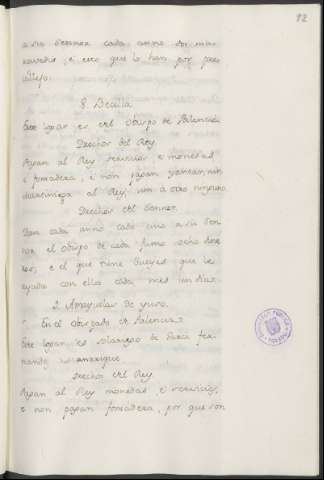 12
a sin Sennor cada anno dos mara-
vedis, e esto que lo han por pre
villejo.
8. Becilla
Este logar es del obispo de Palencia
Derechos del Rey
Pagan al Rey servicios e monedas,
e fonsadera, e non pagan yantar, nin
martiniega al Rey, nin à otro ninguno.
Derechos del Sennor.
Dan cada anno cada uno a su Sen-
nor el obispo de cada fumo ocho dine
ros; e el que tiene bueyes que le
ayude con ellos cada mes un dia.
En el Obispado de Palencia.
Este logar es solariego de Garcia fer-
randez manrique.
Derechos del Rey
Pagan al Rey monedas e servicios,
e non pagan fonsadera, por que son